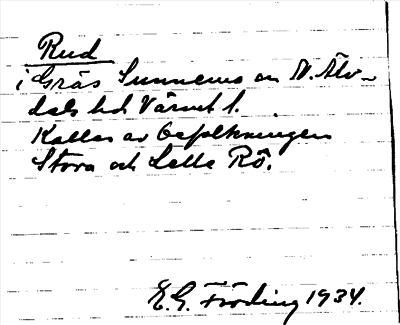 Rud
i Gräs Sunnemo sn N. Älv-
dals hd Värml l.
Kallas av befolkningen
Stora och Lella Rô.
E. G. Fröding 1934.